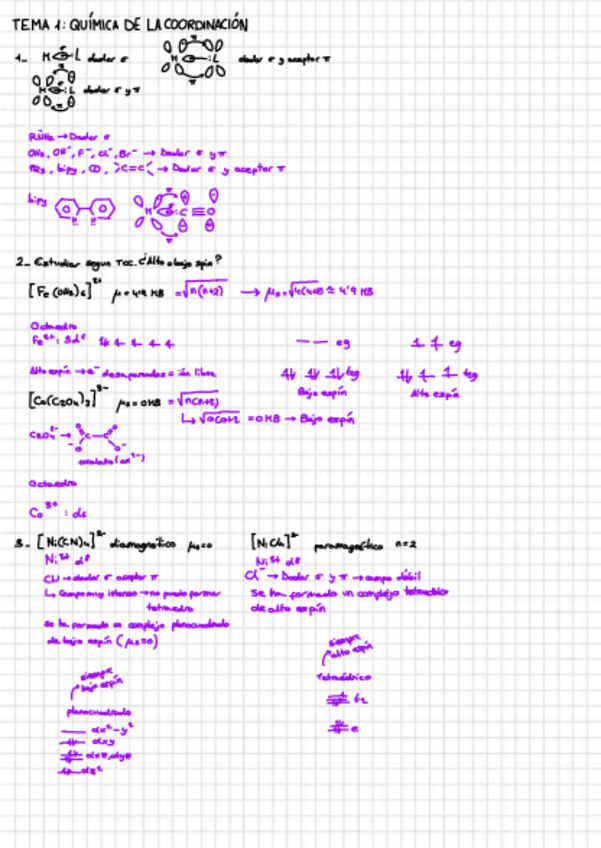 TEMA 1: QUÍMICA DE LA COORDINACIÓN
1- M L dador σ M :L dador σ y aceptor π
M :L dador σ y π
RNH2 → Dador σ
OH2, OH⁻, F⁻, Cl⁻, Br⁻ → Dador σ y π
PR3, bipy, CO, >C=C< → Dador σ y aceptor π
bipy M C≡O
2- Estudiar segun TCC. ¿Alto o bajo spin?
[Fe(OH2)6]²⁺ μ = 4'9 MB = √n(n+2) → μs = √4(4+2) ≈ 4'9 MB
Octaedro
Fe²⁺: 3d⁶ eg eg
Alto espín → e⁻ desapareados = ión libre t2g t2g
Bajo espín Alto espín
[Co(C2O4)3]³⁻ μs = 0 MB = √n(n+2)
↳ √0(0+2) = 0 MB → Bajo espín
C2O4²⁻ →
oxalato (ox²⁻)
Octaedro
Co³⁺: d⁶
3- [Ni(CN)4]²⁻ diamagnético μs=0 [NiCl4]²⁻ paramagnético n=2
Ni²⁺ d⁸ Ni²⁺ d⁸
CN → dador σ aceptor π Cl⁻ → Dador σ y π → campo débil
↳ Campo muy intenso → no puede formar tetraedro
Se ha formado un complejo tetraédrico de alto espín
Se ha formado un complejo planocuadrado
de bajo espín (μs=0)
siempre alto espín
siempre bajo espín
Tetraédrico
t2
planocuadrado
e
dx²-y²
dxy
dxz, dyz
dz²